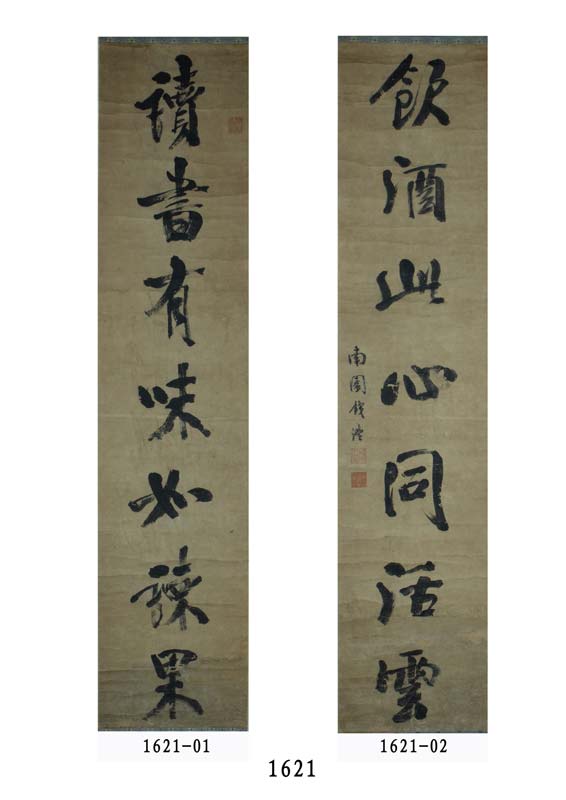 讀書有味如諫果
飲酒此心同活雲
南園錢灃
1621-01
1621-02
1621